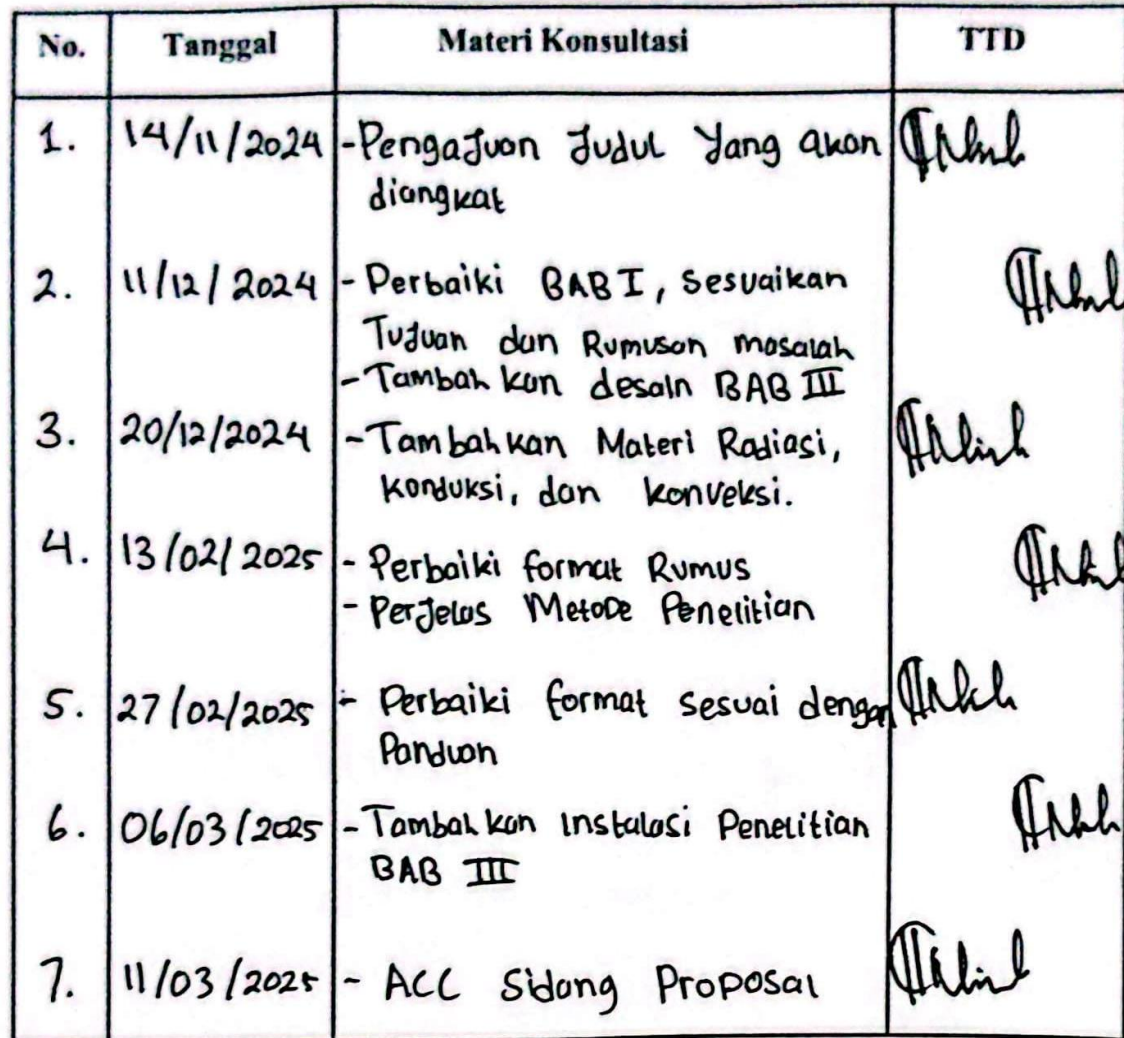 No. Tanggal Materi Konsultasi TTD
1. 14/11/2024 - Pengajuan Judul Yang akan
diangkat
2. 11/12/2024 - Perbaiki BAB I, Sesuaikan
Tujuan dan Rumusan masalah
- Tambah kan desain BAB III
3. 20/12/2024 - Tambah kan Materi Radiasi,
konduksi, dan konveksi.
4. 13/02/2025 - Perbaiki format Rumus
- Perjelas Metode Penelitian
5. 27/02/2025 - Perbaiki format sesuai dengan
Panduan
6. 06/03/2025 - Tambah kan Instalasi Penelitian
BAB III
7. 11/03/2025 - ACC Sidang Proposal